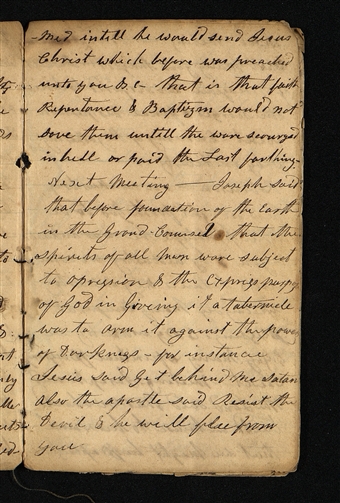 med intill he would send Jesus
Christ which before was preached
unto you &c— that is that faith
Repentance & Baptism would not
save them untill the ware scourged
in hell or paid the Last farthing—
Next Meeting —— Joseph said
that before foundation of the Earth
in the Grand Counsel that the
spirits of all Men ware subject
to opression & the express purpose
of God in Giveing it a tabernicle
was to arm it against the power
of Darkness – for instance
Jesus said Get behind me Satan
also the apostle said Resist the
Devil & he will flee from
you